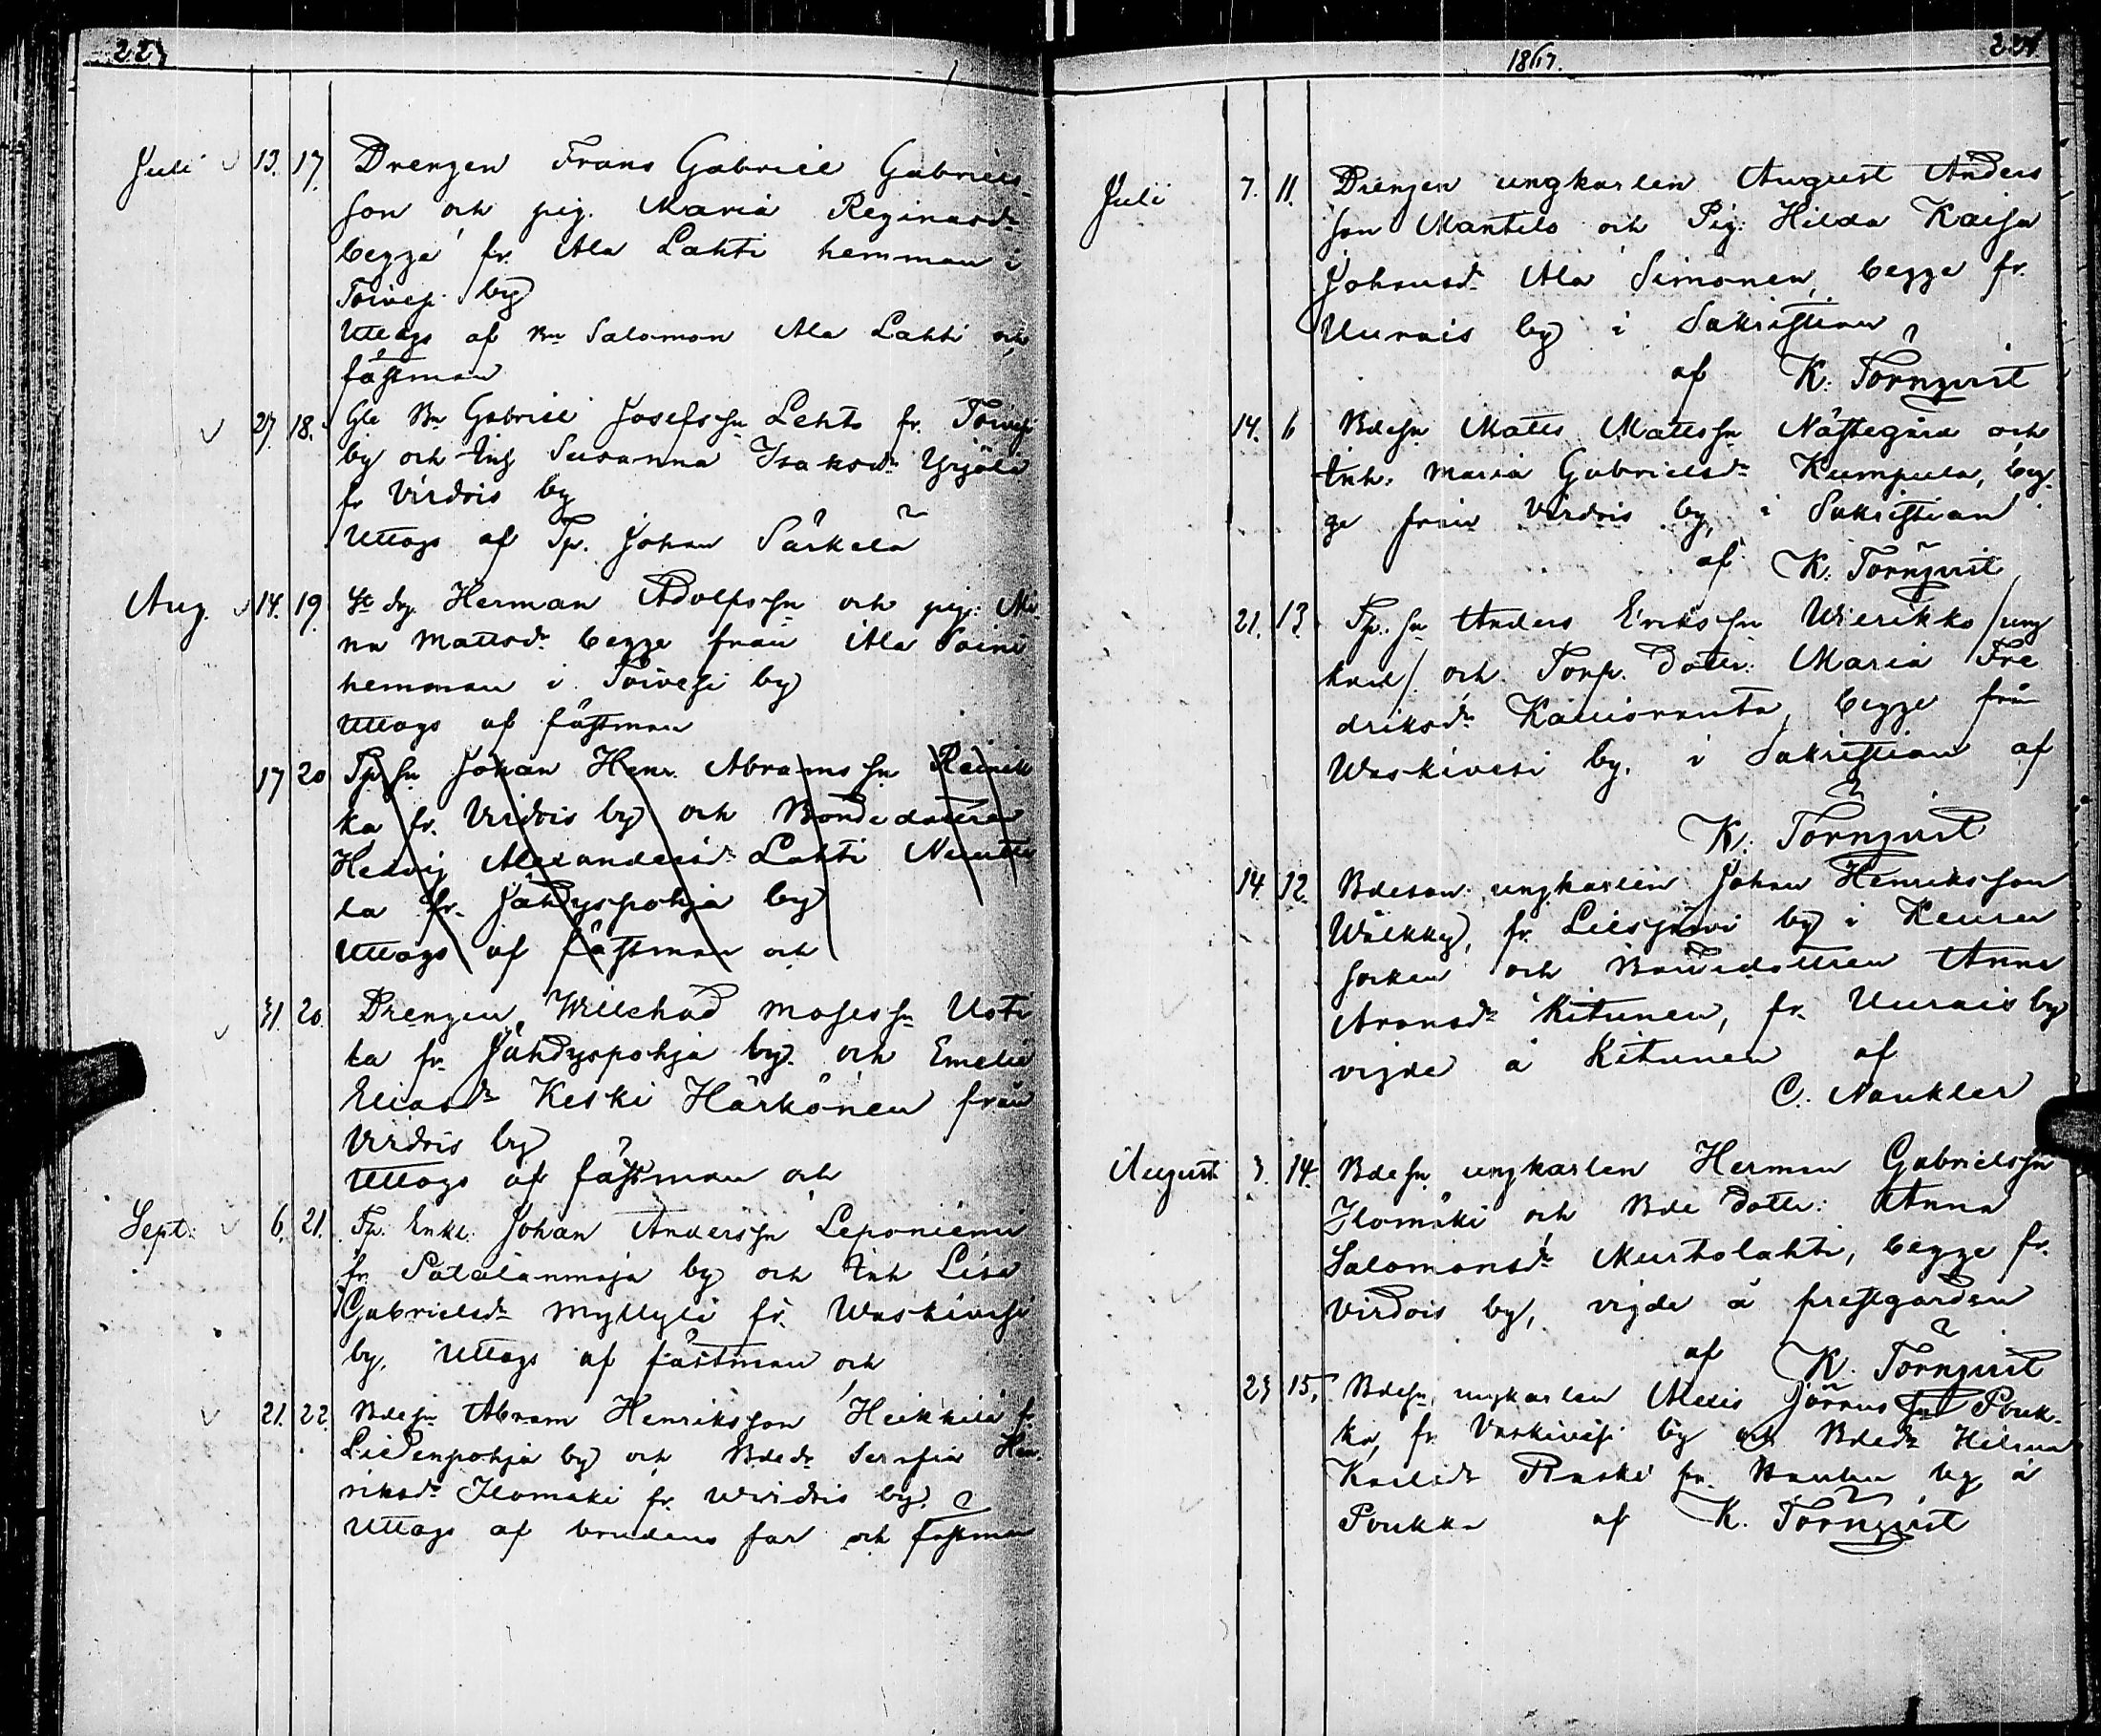 227
Juli 13. 17. Drengen Frans Gabriel Gabriels-
son och pig. Maria Reginasdr
begge fr. Ala Lahti hemman i
Toivesi by
Uttogs af Bn Salomon Ala Lahti och
fästman
27. 18. Gle Bn Gabriel Josefssn Lehto fr. Toivesi
by och Inh Susanna Isaksdr Yrjölä
fr Virdois by
Uttogs af Tp. Johan Särkelä
Aug. 14. 19. St dg. Herman Adolfssn och pig: Mi-
na Mattsdr begge från Ala Soini
hemman i Toivesi by
Uttogs af fästman
17 20 Tp. sn Johan Henr. Abramssn Reinik
ka fr. Virdois by och Bondedottren
Hedvig Alexandersdr Lahti
la fr. Jähdyspohja by
Uttogs af fästman och
31. 20. Drengen Willehad Mosessn Uoti
la fr. Jähdyspohja by. och Emelie
Eliasdr Keski Härkönen från
Virdois by
Uttogs af fästman och
Sept. 6. 21. Tp. Enkl. Johan Anderssn Leponiemi
fr. Patalanmaja by och Inh Lisa
Gabrielsdr Myllylä fr. Waskivesi
by. Uttogs af fästman och
21. 22. Bdesn Abram Henriksson Heikkilä fr.
Liedenpohja by och Bdedr Serafia Hen-
riksdr Ilomäki fr. Wirdois by.
Uttogs af brudens far och fästman
1867.
Juli 7. 11. Drengen ungkarlen August Anders
son Mantila och Pig: Hilda Kaisa
Johansdr Ala Simonen, begge fr.
Uurais by i Sakristian
af K: Törnqvist
14. 6 Bdesn Matts Mattssn Nästegård och
Inh. Maria Gabrielsdr Kumpula, beg-
ge från Virdois by, i Sakristian
af K: Törnqvist
21. 13 Tp. sn Anders Erikssn Wierikko /ung
karl/ och Torp. dotter: Maria Fre
driksdr Kallioranta, begge från
Waskivesi by. i Sakristian af
K: Törnqvist
14. 12. Bdeson ungkarlen Johan Henriksson
Wälkky, fr. Liesjärvi by i Keuru
socken och Bondedottren Anna
Aronsdr Kitunen, fr. Uurais by
vigde å Kitunen af
C. Naukler
Augusti 3. 14. Bdesn ungkarlen Herman Gabrielssn
Ilomäki och Bde dotter: Anna
Salomonsdr Mustolahti, begge fr.
Virdois by, vigde å prestgården
af K. Törnqvist
23 15, Bdesn ungkarlen Alexis Jörans sn Pouk-
ka, fr. Vaskivesi by och Bdedr Hilma
Karlsdr fr. by å
Poukka af K. Törnqvist